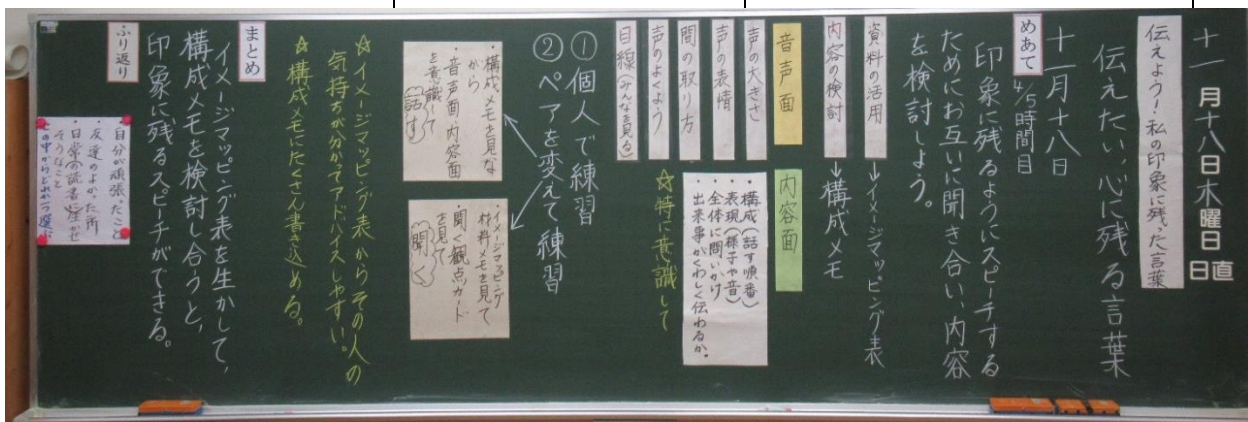 十一月十八日木曜日
日直
伝えよう!私の印象に残った言葉
伝えたい、心に残る言葉
十一月十八日
4/5時間目
めあて
印象に残るようにスピーチする
ためにお互いに聞き合い、内容
を検討しよう。
資料の活用
→イメージマッピング表
内容の検討
→構成メモ
音声面
声の大きさ
声の表情
間の取り方
声のよくよう
目線(みんなを見る)
内容面
・構成(話す順番)
・表現(様子や音)
・全体に問いかけ
・出来事がくわしく伝わるか。
☆特に意識して
①個人で練習
②ペアを変えて練習
・構成メモを見な
がら
・音声面・内容面
を意識して
話す
・イメージマッピング
材料メモを見て
・聞く観点カード
を見て
聞く
☆イメージマッピング表からその人の
気持ちが分かてアドバイスしやすい。
☆構成メモにたくさん書き込める。
まとめ
イメージマッピング表を生かして、
構成メモを検討し合うと、
印象に残るスピーチができる。
ふり返り
・自分が頑張ったこと
・友達のよかった所
・日常の読書に生かせ
そうなこと